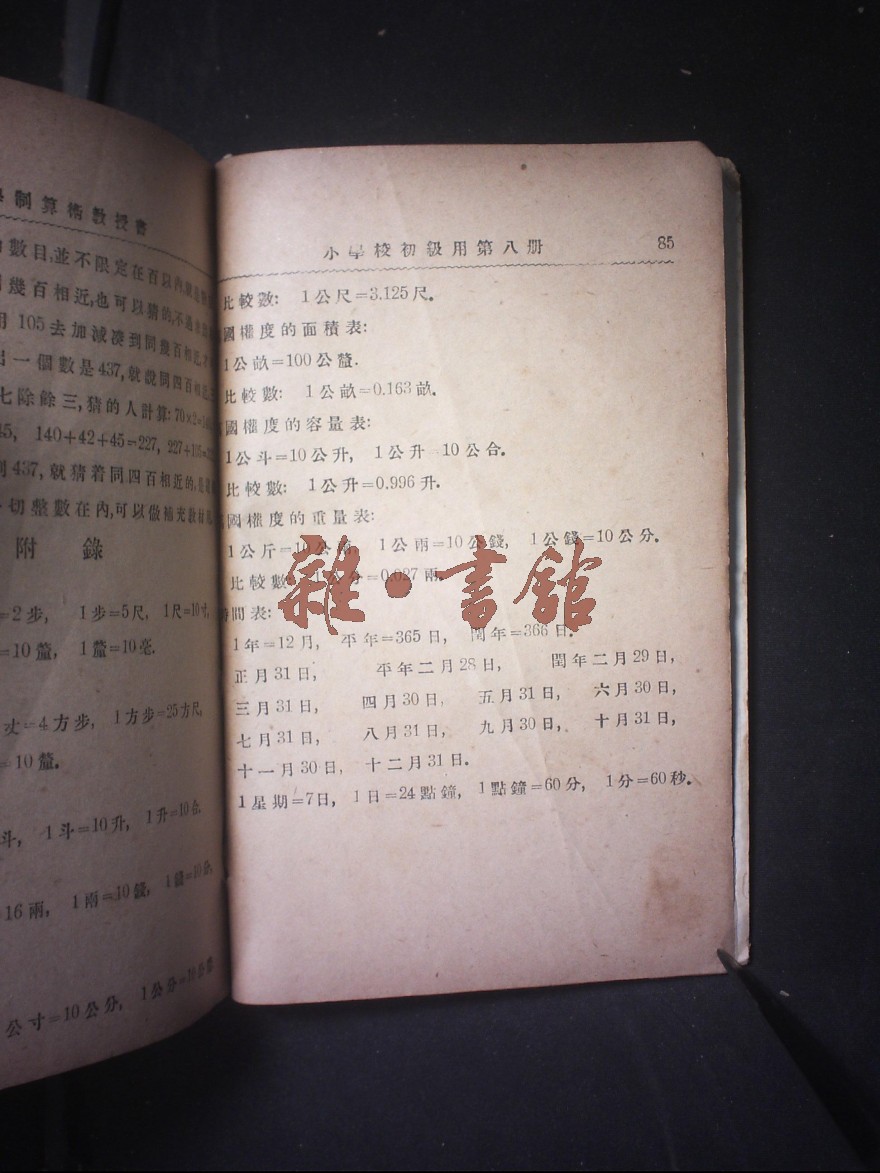 制算術教授書
數目,並不限定在百以內,
幾百相近,也可以猜的,不過
用 105去加減凑到同幾百相近,
出一個數是437,就說同四百相近,
七除餘三,猜的人計算:70×2=140
45, 140+42+45=227, 227+105=
到437,就猜着同四百相近的,
一切整數在內,可以做補充教材
附 錄
=2步, 1步=5尺, 1尺=10寸,
=10釐, 1釐=10毫.
丈=4方步, 1方步=25方尺,
=10釐.
斗, 1斗=10升, 1升=10合.
16兩, 1兩=10錢, 1錢=10分,
公寸=10公分, 1公分=10公釐
小學校初級用第八册 85
比較數: 1公尺=3.125尺.
國權度的面積表:
1公畝=100公釐.
比較數: 1公畝=0.163畝.
國權度的容量表:
1公斗=10公升, 1公升=10公合.
比較數: 1公升=0.996升.
國權度的重量表:
1公斤=10公兩, 1公兩=10公錢, 1公錢=10公分.
比較數: 1公分=0.027兩.
時間表:
1年=12月, 平年=365日, 閏年=366日.
正月31日, 平年二月28日, 閏年二月29日,
三月31日, 四月30日, 五月31日, 六月30日,
七月31日, 八月31日, 九月30日, 十月31日,
十一月30日, 十二月31日.
1星期=7日, 1日=24點鐘, 1點鐘=60分, 1分=60秒.
雜·書館